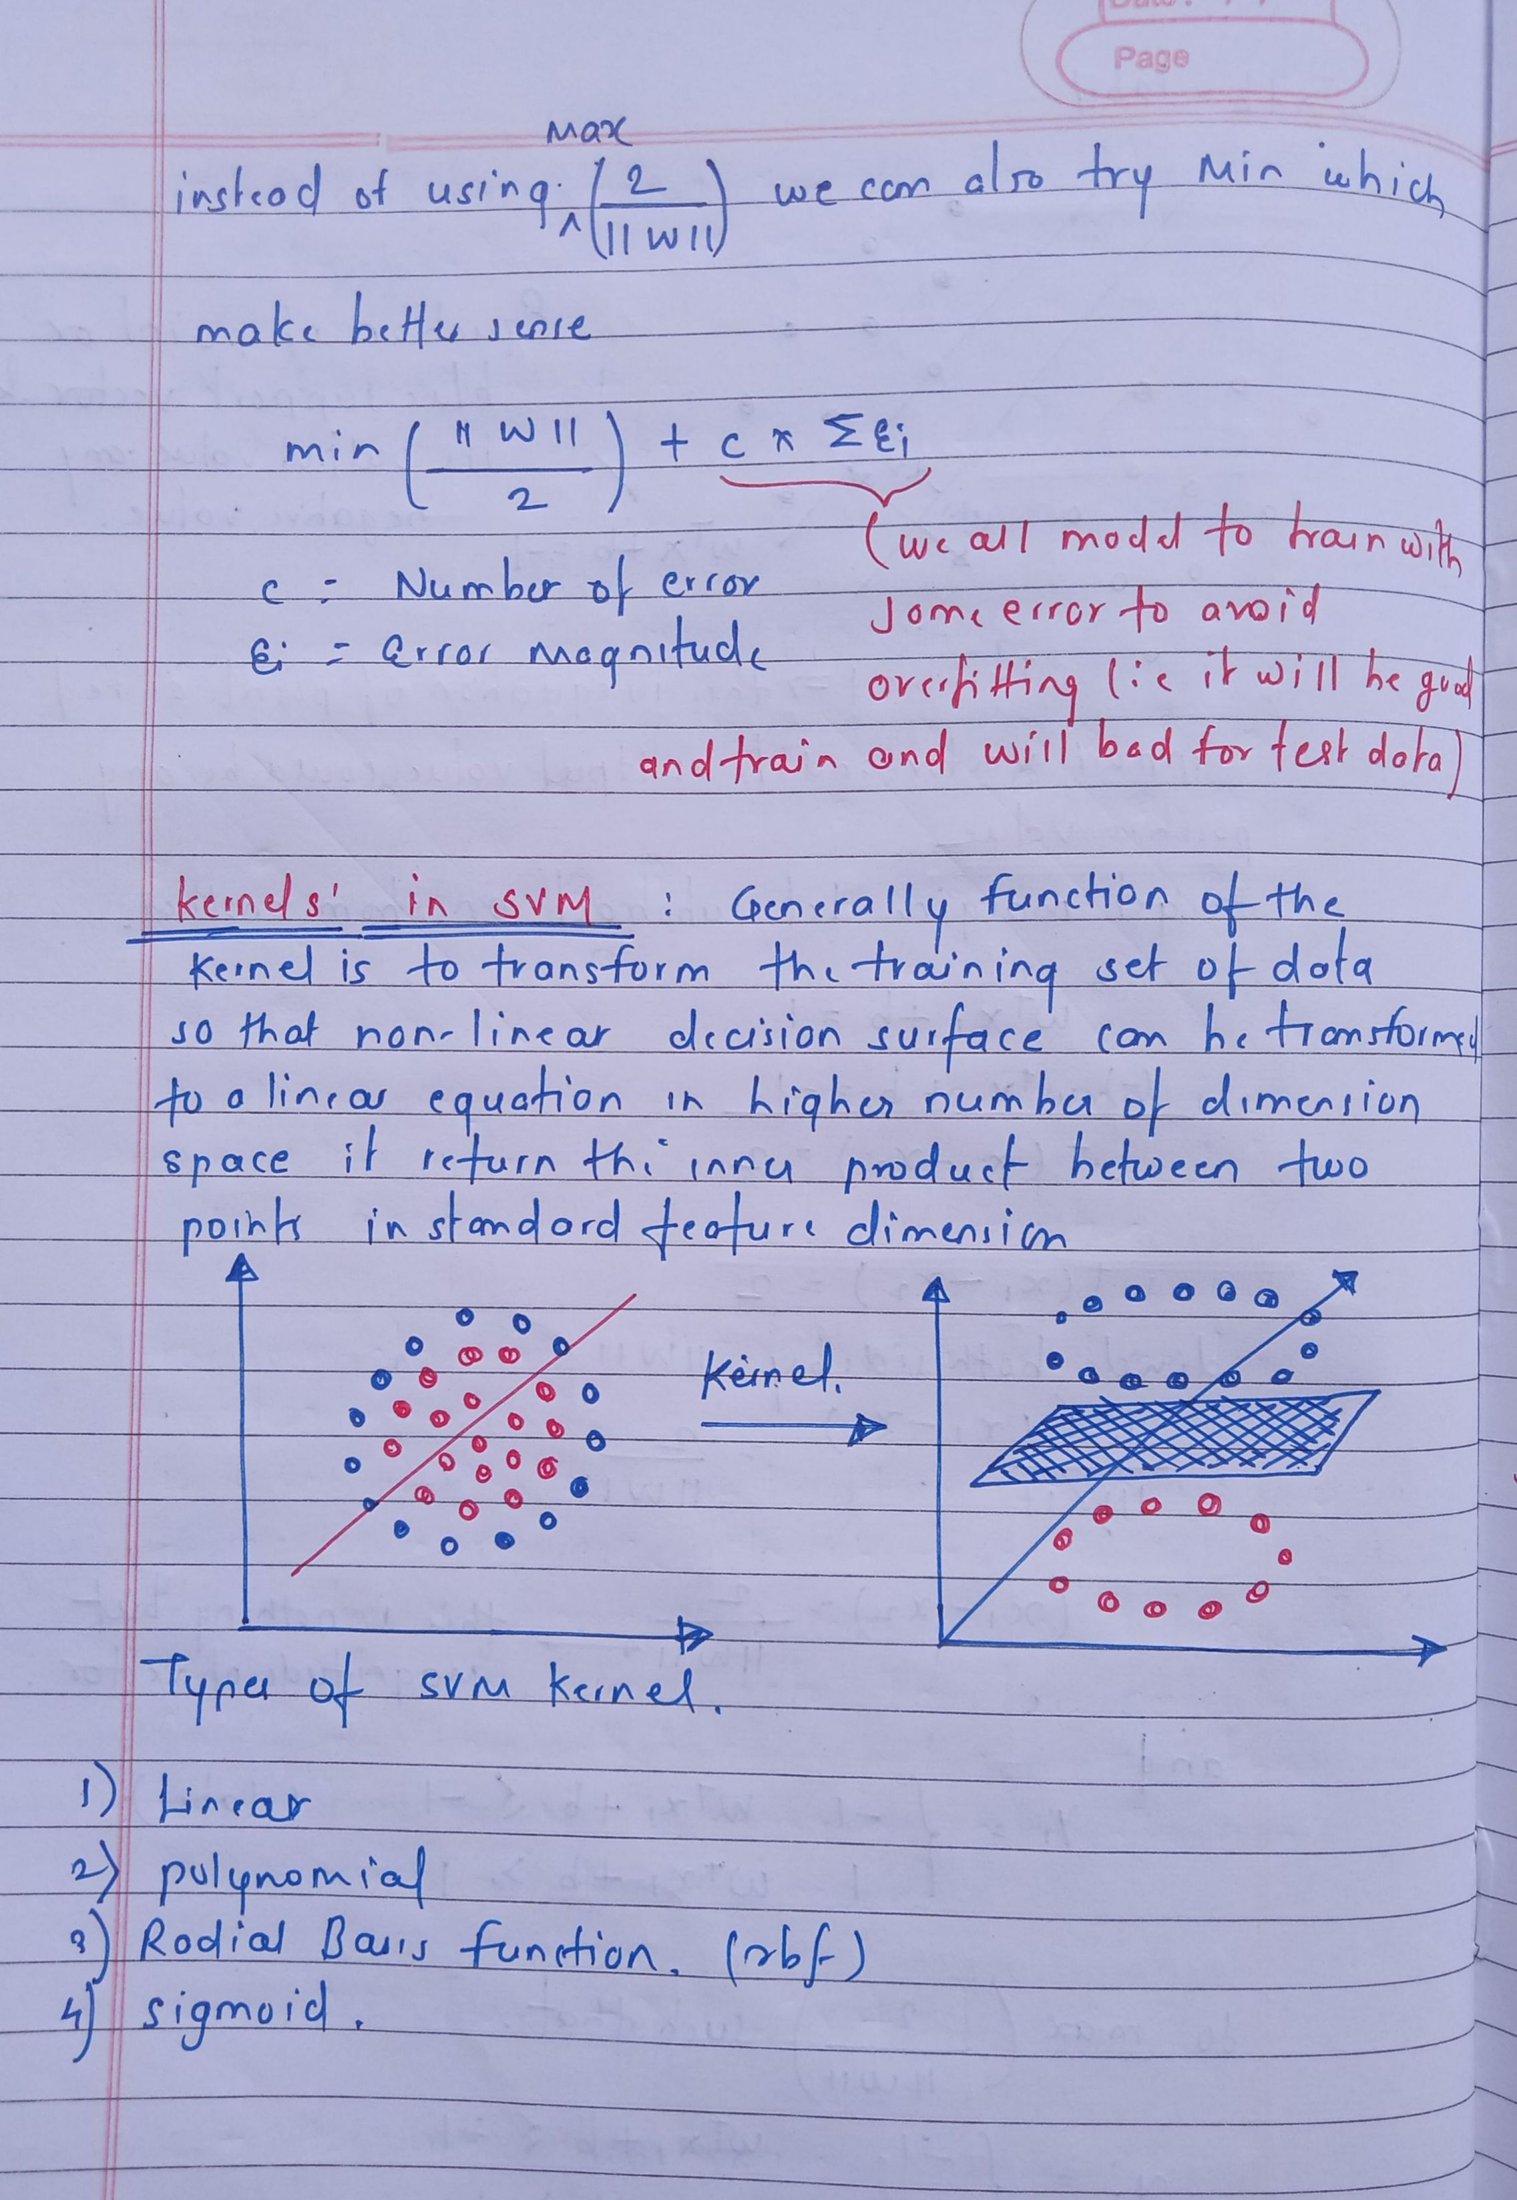 Date :
Page
Max
instead of using ^ (2 / ||W||) we can also try Min which
make better sense
min (||W|| / 2) + c * Σ ξi
(we all model to train with
c = Number of error
some error to avoid
ξi = Error magnitude
overfitting (ie it will be good
and train and will bad for test data)
kernels' in SVM : Generally function of the
kernel is to transform the training set of data
so that non-linear decision surface can be transformed
to a linear equation in higher number of dimension
space it return the inner product between two
points in standard feature dimension
Kernel.
Types of SVM Kernel.
1) Linear
2) polynomial
3) Radial Basis function. (rbf)
4) sigmoid.